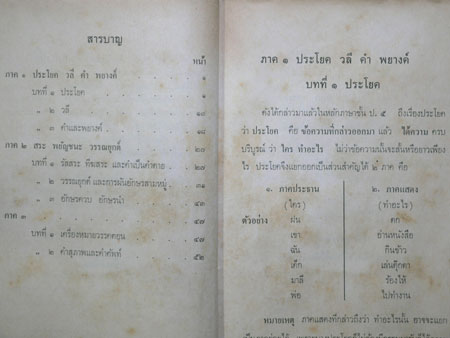 สารบาญ
หน้า
ภาค ๑ ประโยค วลี คำ พยางค์ ๑
บทที่ ๑ ประโยค ๑
" ๒ วลี ๑๘
" ๓ คำและพยางค์
ภาค ๒ สระ พยัญชนะ วรรณยุกต์ ๒๗
บทที่ ๑ รัสสระ ทีฆสระ และคำเป็นคำตาย ๒๗
" ๒ วรรณยุกต์ และการผันอักษรสามหมู่
" ๓ อักษรควบ อักษรนำ
ภาค ๓ ๔๗
บทที่ ๑ เครื่องหมายวรรคตอน ๔๗
" ๒ คำสุภาพและคำศัพท์ ๕๒
ภาค ๑ ประโยค วลี คำ พยางค์
บทที่ ๑ ประโยค
ดังได้กล่าวมาแล้วในหลักภาษาชั้น ป. ๕ ถึงเรื่องประโยค
ว่า ประโยค คือ ข้อความที่กล่าวออกมา แล้ว ได้ความ ครบ
บริบูรณ์ ว่า ใคร ทำอะไร ไม่ว่าข้อความนั้นจะสั้นหรือยาวเพียง
ไร ประโยคจึงแยกออกเป็นส่วนสำคัญได้ ๒ ภาค คือ
๑. ภาคประธาน ๒. ภาคแสดง
(ใคร) (ทำอะไร)
ตัวอย่าง ฝน ตก
เขา อ่านหนังสือ
ฉัน กินข้าว
เด็ก เล่นตุ๊กตา
มาลี ร้องไห้
พ่อ ไปทำงาน
หมายเหตุ ภาคแสดงที่กล่าวถึงว่า ทำอะไรนั้น อาจจะแยก